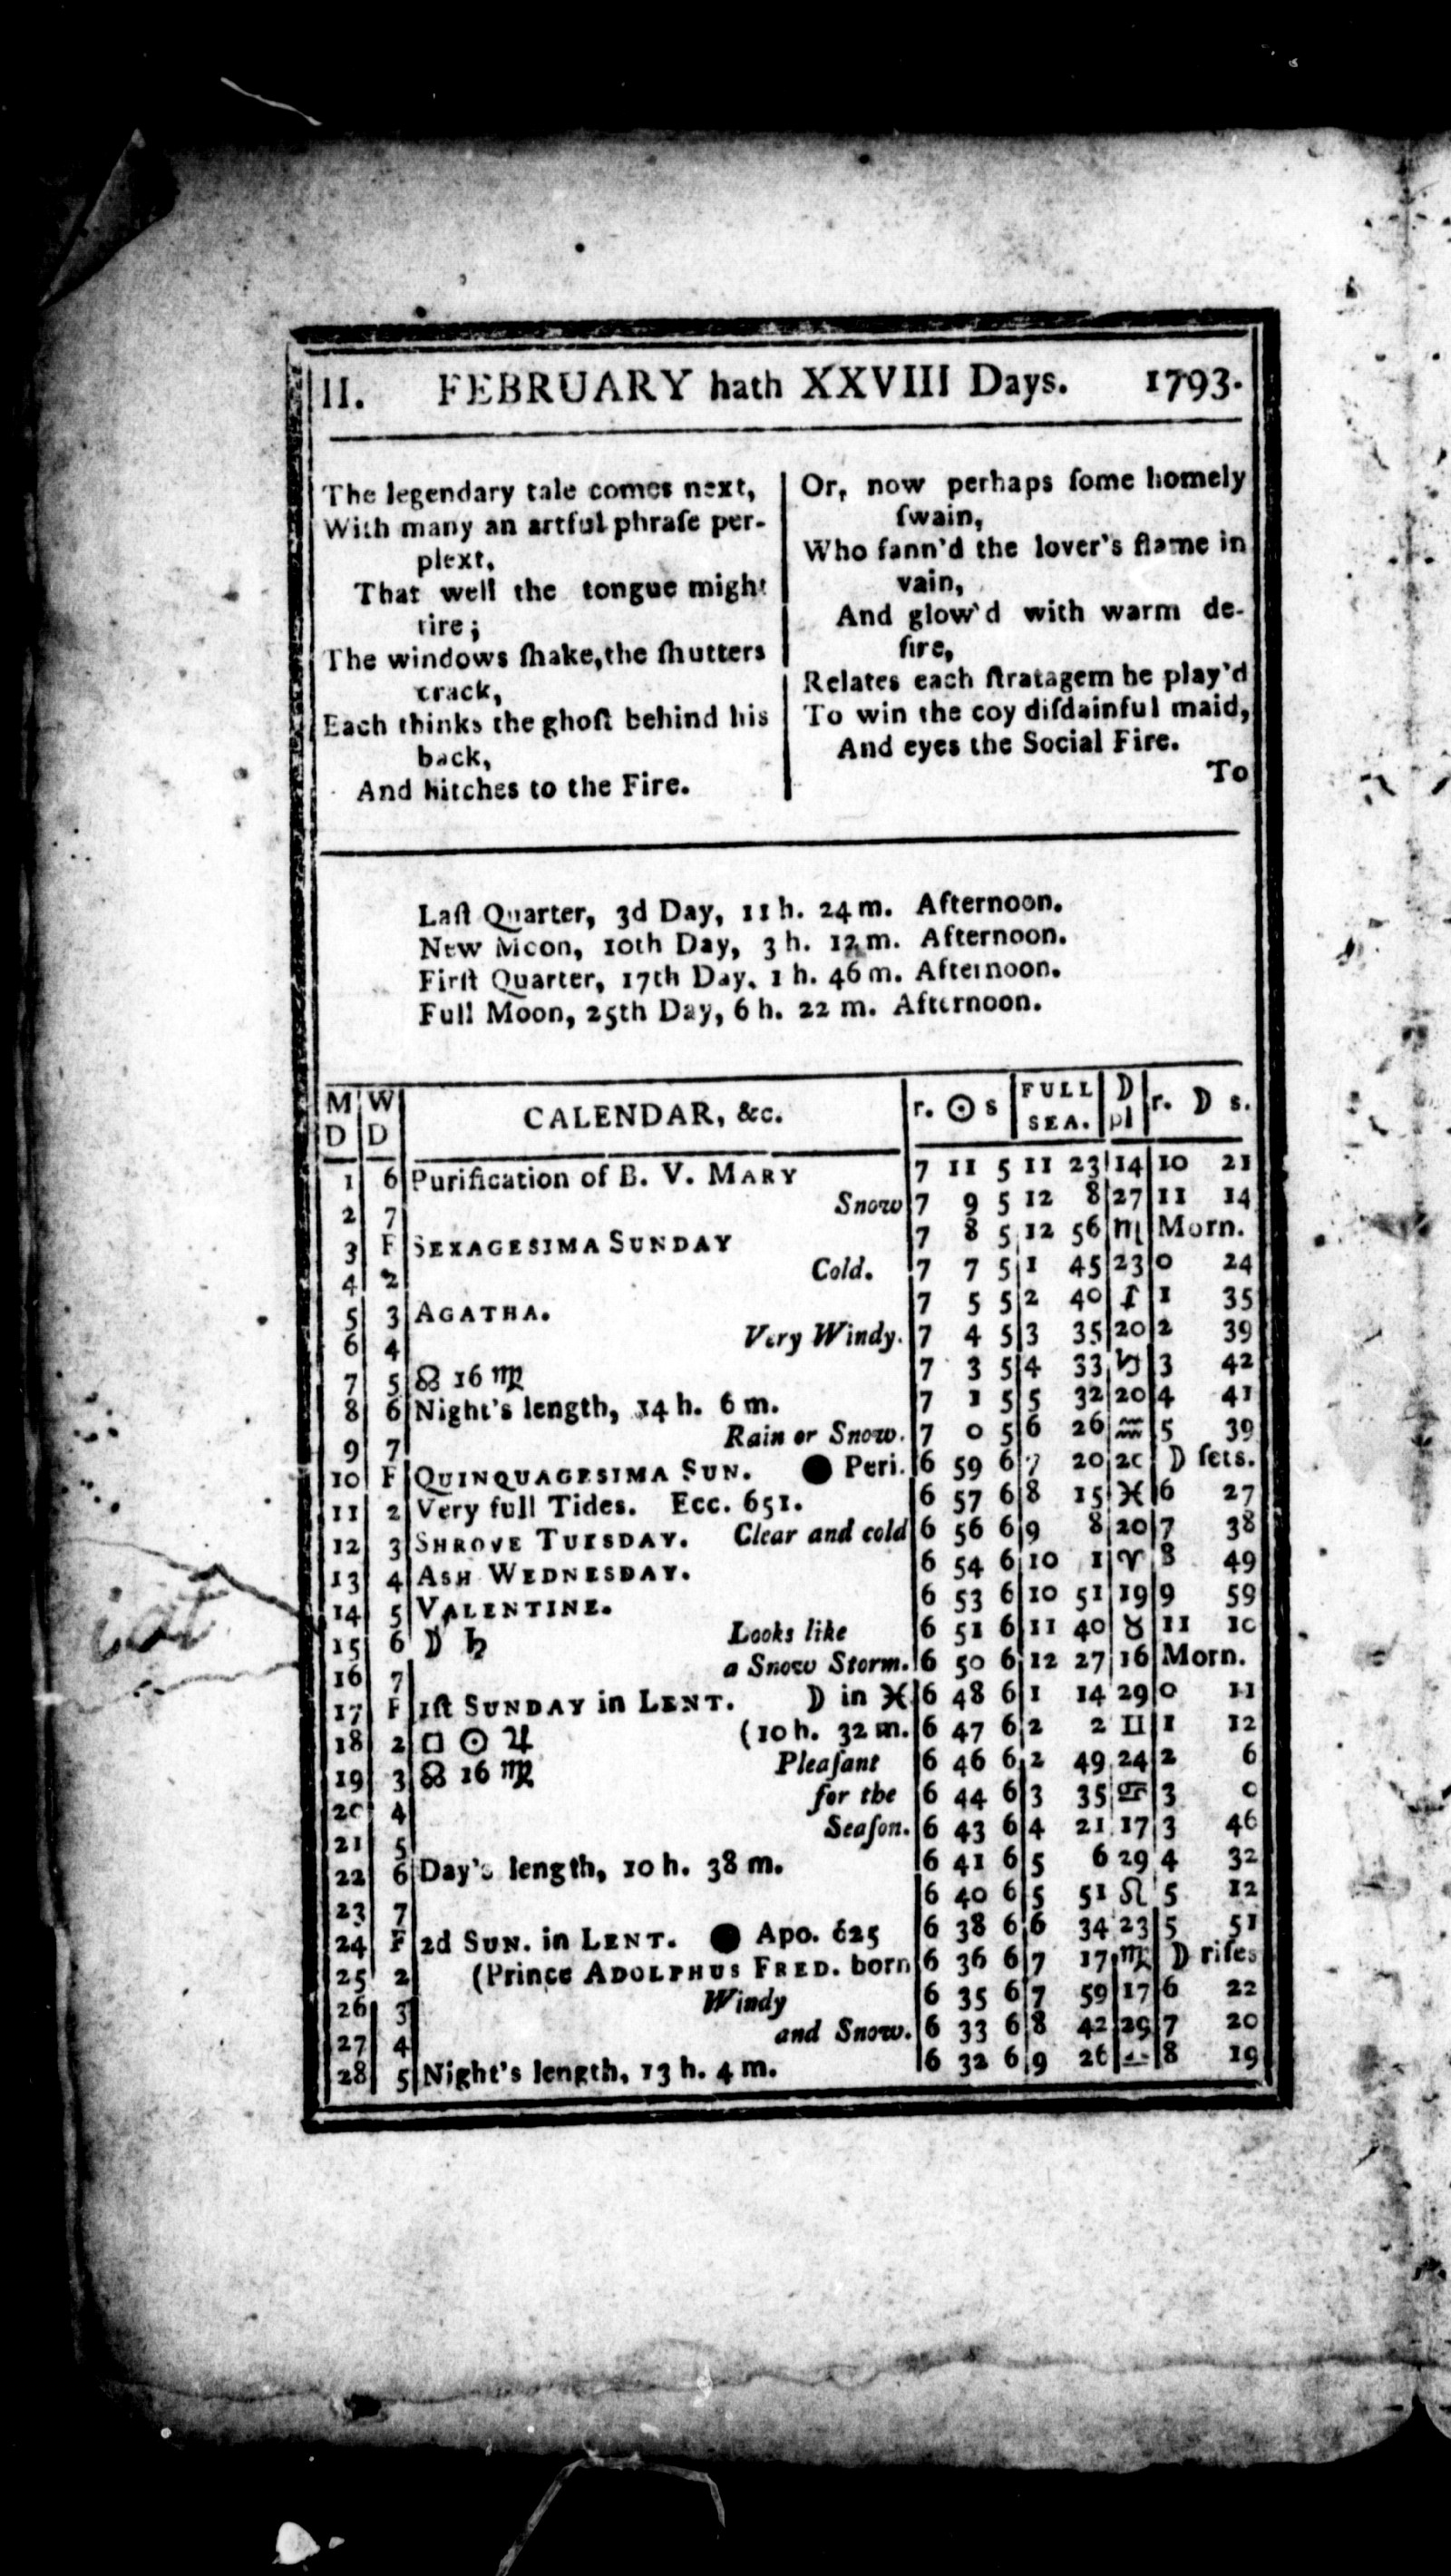 II. FEBRUARY hath XXVIII Days. 1793.
The legendary tale comes next,
With many an artful phraſe per-
plext,
That well the tongue might
tire;
The windows ſhake, the ſhutters
crack,
Each thinks the ghoſt behind his
back,
And hitches to the Fire.
Or, now perhaps ſome homely
ſwain,
Who fann'd the lover's flame in
vain,
And glow'd with warm de-
ſire,
Relates each ſtratagem he play'd
To win the coy diſdainful maid,
And eyes the Social Fire.
To
Laſt Quarter, 3d Day, 11 h. 24 m. Afternoon.
New Moon, 10th Day, 3 h. 12 m. Afternoon.
Firſt Quarter, 17th Day, 1 h. 46 m. Afternoon.
Full Moon, 25th Day, 6 h. 22 m. Afternoon.
M D W D CALENDAR, &c. r. ☉ s FULL SEA. ☽ pl r. ☽ s.
1 6 Purification of B. V. MARY 7 11 5 11 23 14 10 21
2 7 Snow 7 9 5 12 8 27 11 14
3 F SEXAGESIMA SUNDAY 7 8 5 12 56 ♏ Morn.
4 2 Cold. 7 7 5 1 45 23 0 24
5 3 AGATHA. 7 5 5 2 40 ♐ 1 35
6 4 Very Windy. 7 4 5 3 35 20 2 39
7 5 ☊ 16 ♍ 7 3 5 4 33 ♑ 3 42
8 6 Night's length, 14 h. 6 m. 7 1 5 5 32 20 4 41
9 7 Rain or Snow. 7 0 5 6 26 ♒ 5 39
10 F QUINQUAGESIMA SUN. ● Peri. 6 59 6 7 20 20 ☽ ſets.
11 2 Very full Tides. Ecc. 651. 6 57 6 8 15 ♓ 6 27
12 3 SHROVE TUESDAY. Clear and cold 6 56 6 9 8 20 7 38
13 4 ASH WEDNESDAY. 6 54 6 10 1 ♈ 8 49
14 5 VALENTINE. 6 53 6 10 51 19 9 59
15 6 ☽ ♄ Looks like 6 51 6 11 40 ♉ 11 10
16 7 a Snow Storm. 6 50 6 12 27 16 Morn.
17 F 1ſt SUNDAY in LENT. ☽ in ♓ 6 48 6 1 14 29 0 11
18 2 □ ☉ ♃ (10 h. 32 m. 6 47 6 2 2 ♊ 1 12
19 3 ☊ 16 ♍ Pleaſant 6 46 6 2 49 24 2 6
20 4 for the 6 44 6 3 35 ♋ 3 0
21 5 Seaſon. 6 43 6 4 21 17 3 46
22 6 Day's length, 10 h. 38 m. 6 41 6 5 6 29 4 32
23 7 6 40 6 5 51 ♌ 5 12
24 F 2d SUN. in LENT. ● Apo. 625 6 38 6 6 34 23 5 51
25 2 (Prince ADOLPHUS FRED. born 6 36 6 7 17 ♍ ☽ riſes
26 3 Windy 6 35 6 7 59 17 6 22
27 4 and Snow. 6 33 6 8 42 29 7 20
28 5 Night's length, 13 h. 4 m. 6 32 6 9 26 ♎ 8 19